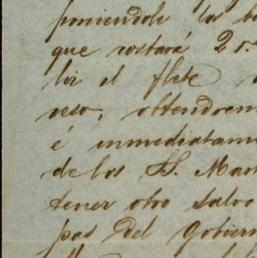 poniendole los
que costará 2 r.
el flete
veso, obtendrem
é inmediatame
de los SS. Mar
tener otro salvo
pas del Gobier